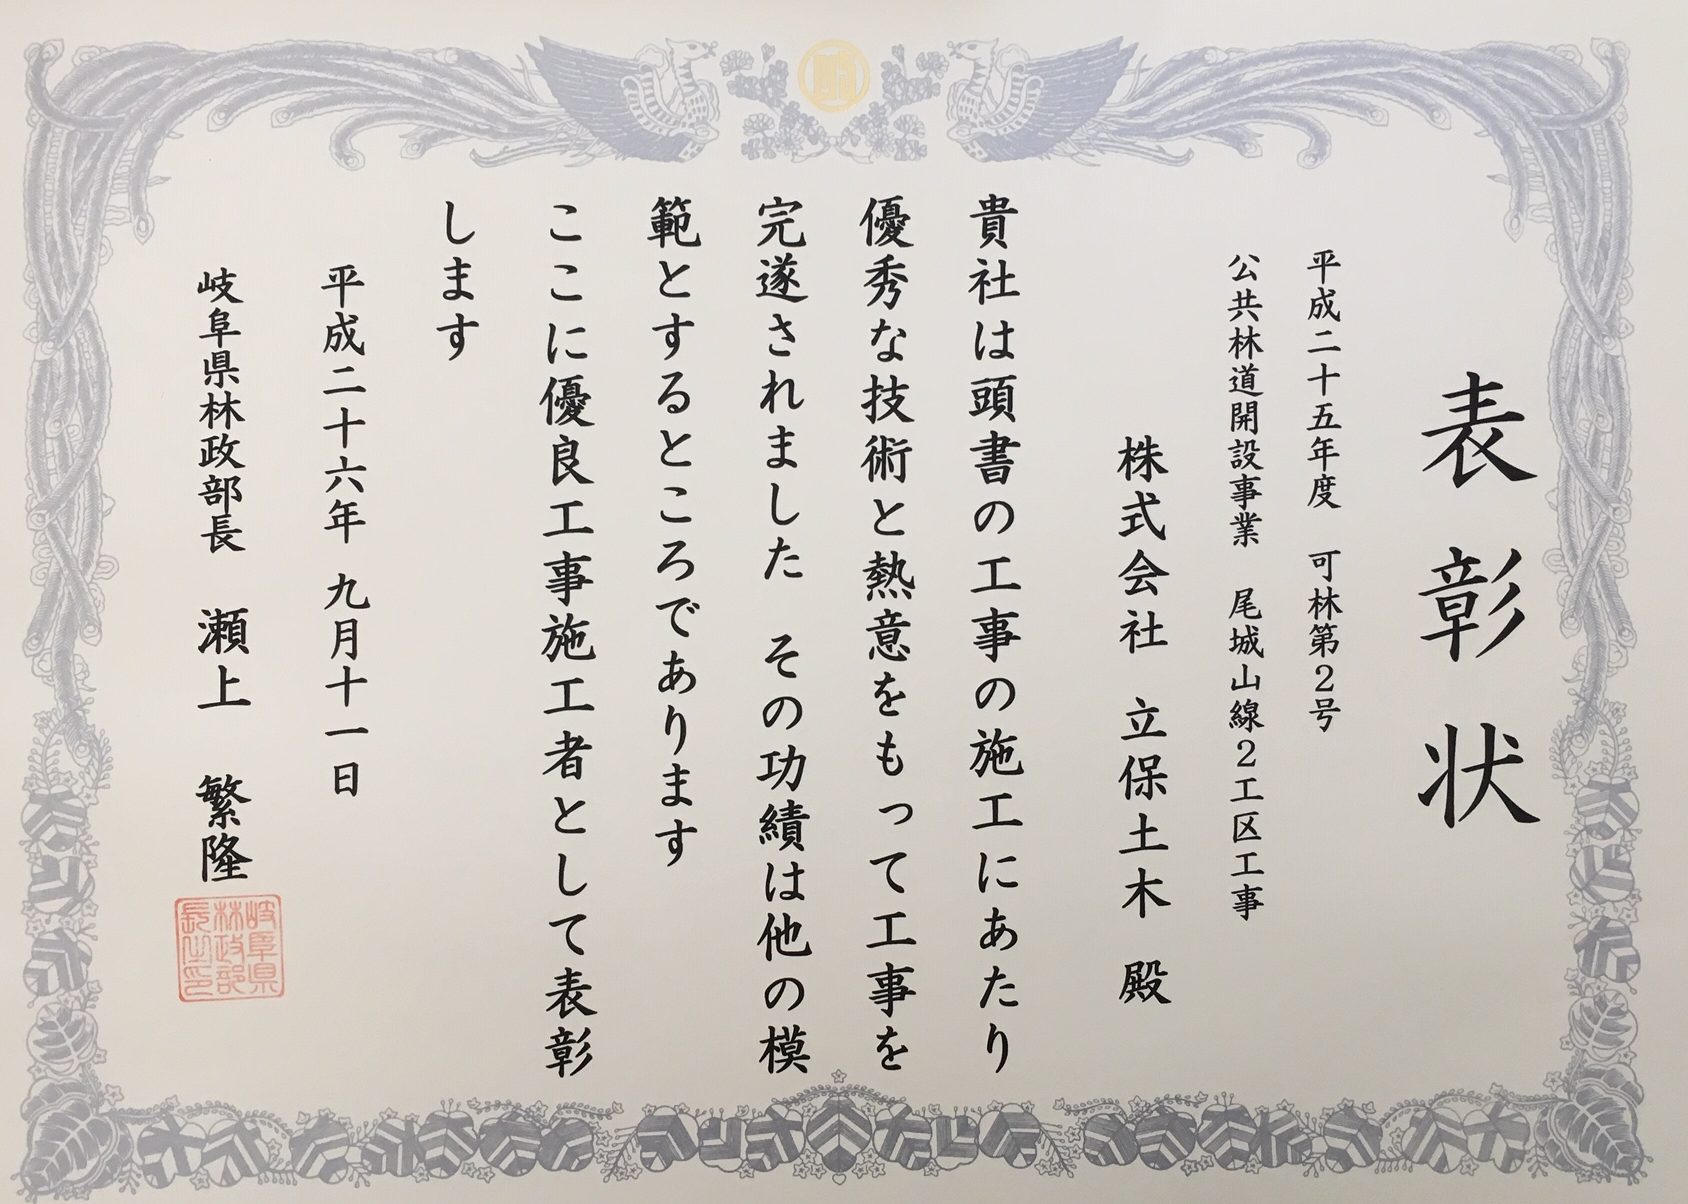 表彰状
平成二十五年度　可林第２号
公共林道開設事業　尾城山線２工区工事
株式会社　立保土木　殿
貴社は頭書の工事の施工にあたり
優秀な技術と熱意をもって工事を
完遂されました　その功績は他の模
範とするところであります
ここに優良工事施工者として表彰
します
平成二十六年　九月十一日
岐阜県林政部長　瀬上　繁隆
岐阜県
林政部
長之印